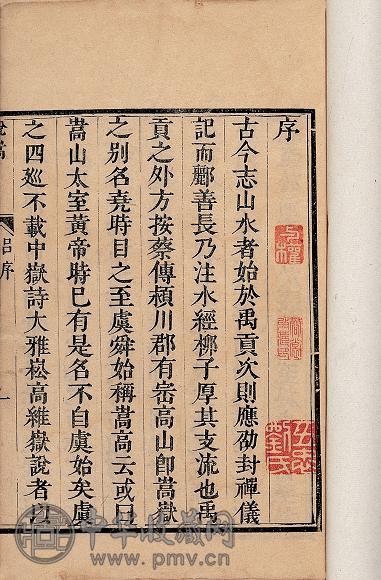 序
古今志山水者始於禹貢次則應劭封禪儀
記而酈善長乃注水經柳子厚其支流也禹
貢之外方按蔡傳頴川郡有密高山卽嵩嶽
之别名堯時目之至虞舜始稱嵩高云或曰
嵩山太室黄帝時已有是名不自虞始矣虞
之四廵不載中嶽詩大雅崧高維嶽說者以
嵩
吕序
一
中華收藏网
www.pmv.cn